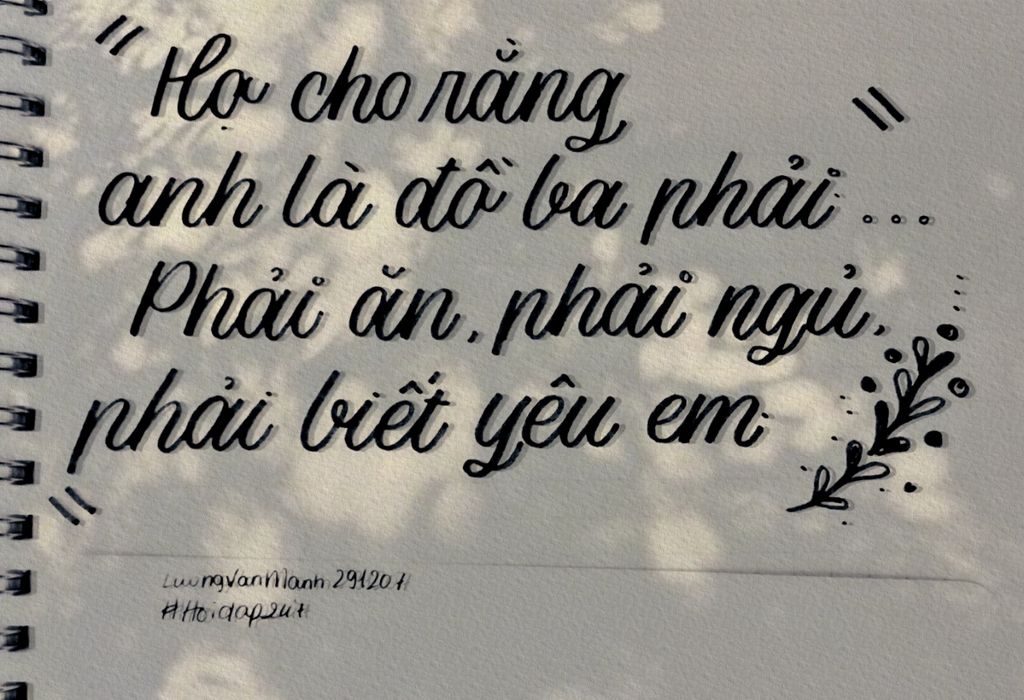 " Họ cho rằng "
anh là đồ ba phải ...
Phải ăn, phải ngủ,
phải biết yêu em
"
LuongVanManh